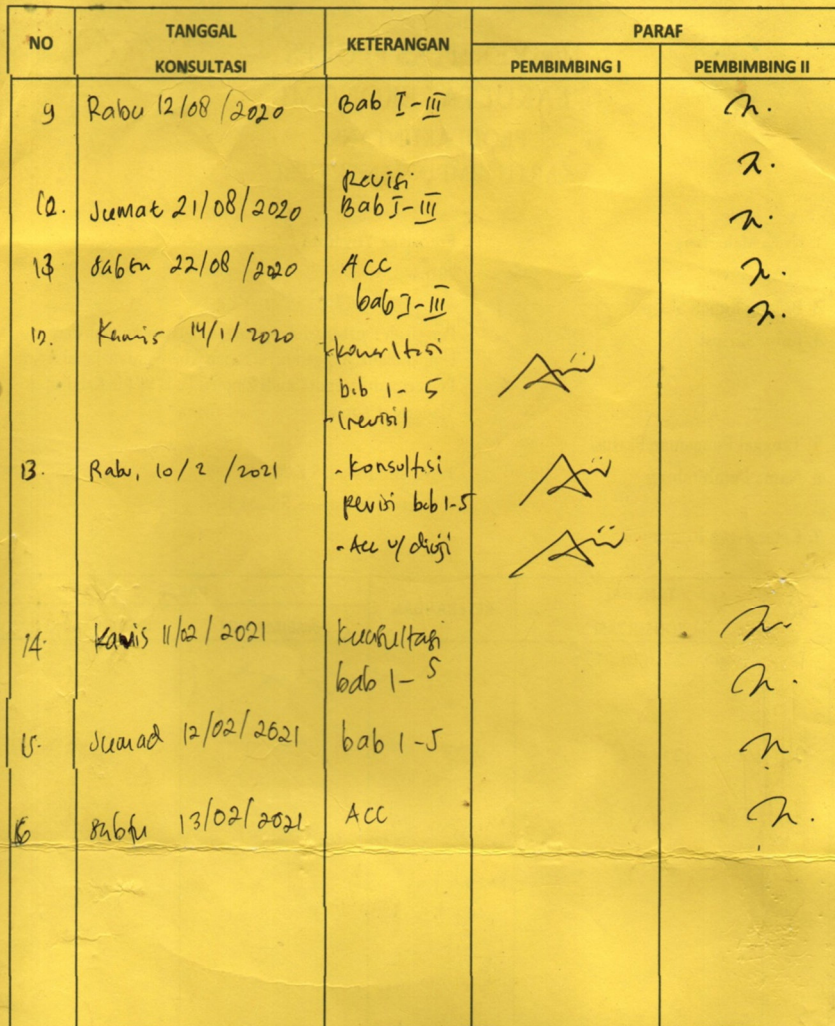 NO TANGGAL KONSULTASI KETERANGAN PARAF
PEMBIMBING I PEMBIMBING II
9 Rabu 12/08/2020 Bab I-III
Revisi
10. Jumat 21/08/2020 Bab I-III
13 Sabtu 22/08/2020 ACC
bab I-III
12. Kamis 14/1/2020 -konsultasi
bab 1-5
-(revisi)
13. Rabu, 10/2/2021 - Konsultasi
revisi bab 1-5
- Acc u/ diuji
14. Kamis 11/02/2021 Konsultasi
bab 1-5
15. Jumad 12/02/2021 bab 1-5
16 Sabtu 13/02/2021 ACC